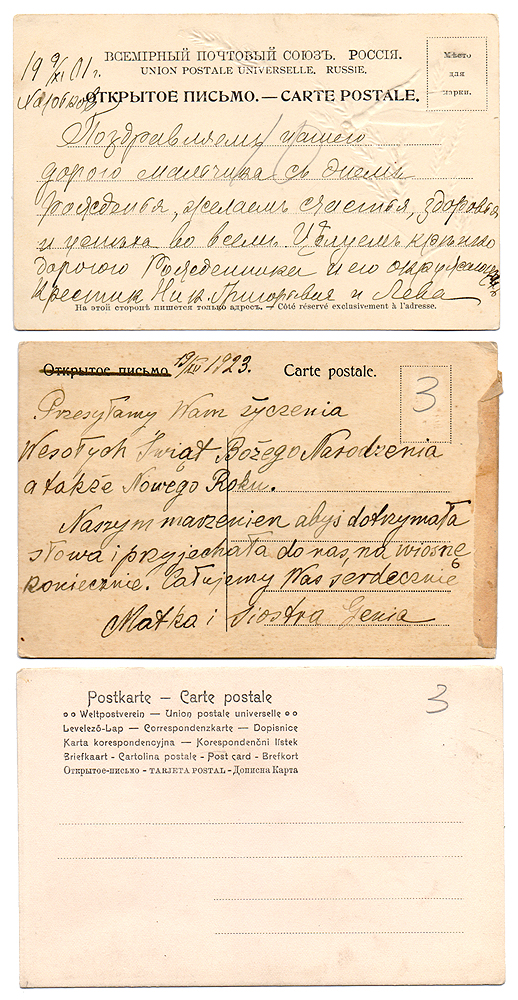 ВСЕМІРНЫЙ ПОЧТОВЫЙ СОЮЗЪ. РОССІЯ.
UNION POSTALE UNIVERSELLE. RUSSIE.
ОТКРЫТОЕ ПИСЬМО. — CARTE POSTALE.
Мѣсто
для
марки.
19 9/XI 01 г.
Поздравляемъ нашего
дорого мальчика съ днемъ
рожденья, желаемъ счастья, здоровья
и успѣха во всемъ. Цѣлуемъ крѣпко
дорогого Рожденника и его
крестник Ник. Григорьевая и Лева
На этой сторонѣ пишется только адресъ. — Côté réservé exclusivement à l'adresse.
Открытое письмо. 19/XII 1923. Carte postale.
3
Przesyłamy Wam życzenia
Wesołych Świąt Bożego Narodzenia
a także Nowego Roku.
Naszym marzenien abyś dotrzymała
słowa i przyjechała do nas, na wiosnę
koniecznie. Całujemy Was serdecznie
Matka i Siostra Genia
6
3
Postkarte — Carte postale
Weltpostverein — Union postale universelle
Levelező-Lap — Correspondenzkarte — Dopisnice
Karta korespondencyjna — Korespondenční lístek
Briefkaart - Cartolina postale - Post card - Brefkort
Открытое-письмо - TARJETA POSTAL - Дописна Карта